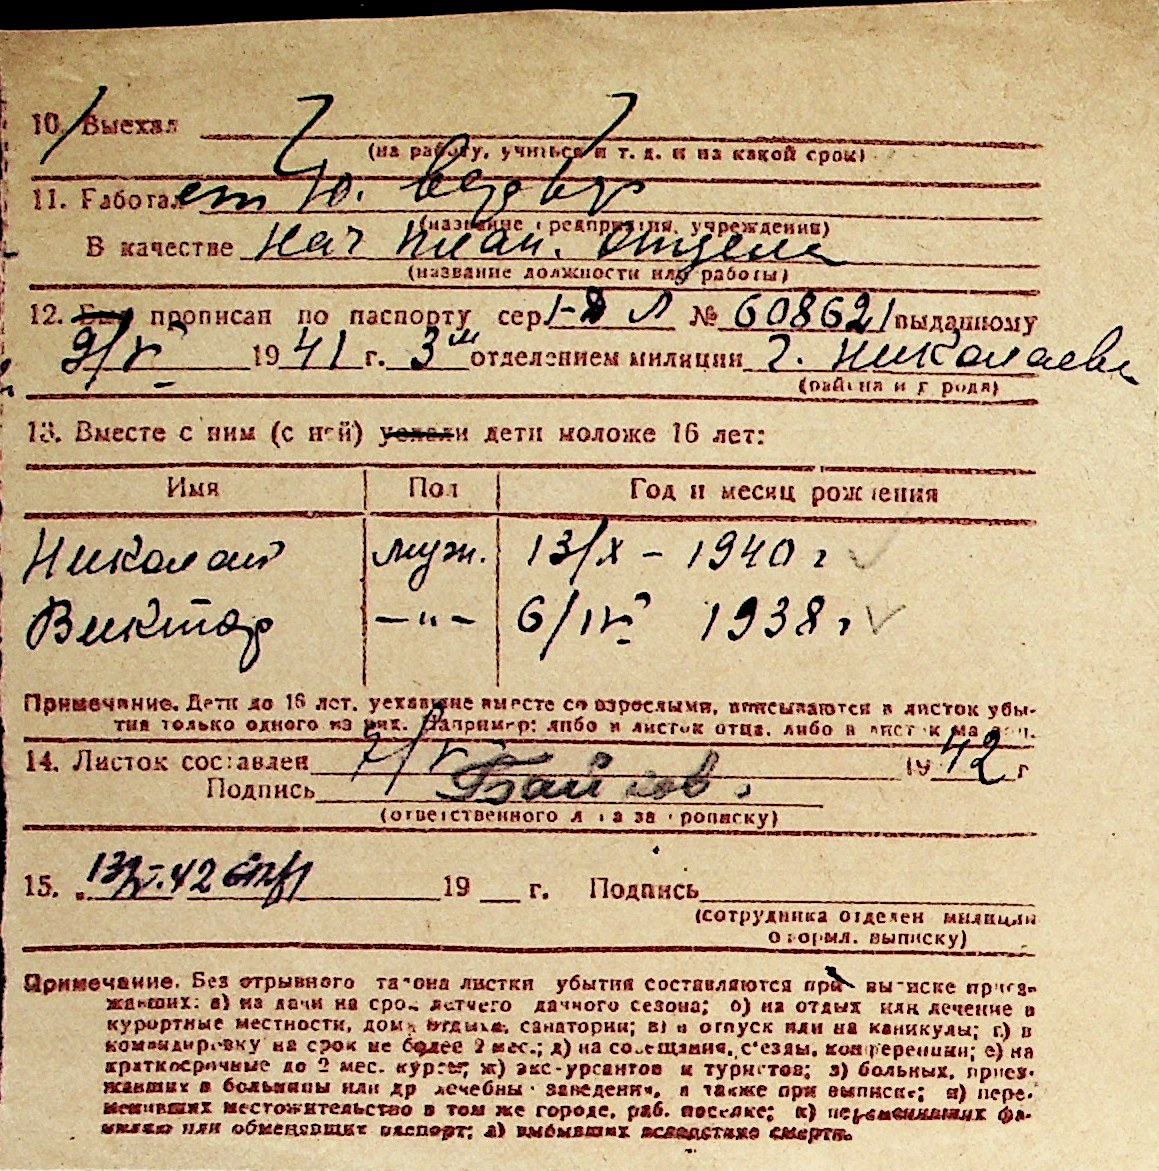 10. Выехал
(на работу, учиться и т. д. и на какой срок)
11. Работал
(название предприятия, учреждения)
В качестве Нач план. отдела
(название должности или работы)
12. Был прописан по паспорту сер. Л № 608621 выданному
9/V 1941 г. 3м отделением милиции г. Николаева
(района и города)
13. Вместе с ним (с ней) уехали дети моложе 16 лет:
Имя Пол Год и месяц рождения
Николай муж. 13/X - 1940 г
Виктор -"- 6/IV 1938 г
Примечание. Дети до 16 лет, уехавшие вместе со взрослыми, вписываются в листок убы-
тия только одного из них. Например: либо в листок отца, либо в листок матери.
14. Листок составлен 7/V 1942 г
Подпись
(ответственного лица за прописку)
15. 19 г. Подпись
(сотрудника отделен милиции
оформл. выписку)
Примечание. Без отрывного талона листки убытия составляются при выписке приез-
жавших: а) на дачи на срок летнего дачного сезона; б) на отдых или лечение в
курортные местности, дома отдыха, санатории; в) в отпуск или на каникулы; г) в
командировку на срок не более 2 мес.; д) на совещания, съезды, конференции; е) на
краткосрочные до 2 мес. курсы; ж) экскурсантов и туристов; з) больных, приез-
жавших в больницы или др лечебны заведения, а также при выписке; и) пере-
менивших местожительство в том же городе, раб. поселке; к) переменивших фа-
милию или обменявших паспорт; л) выбывших вследствие смерти.